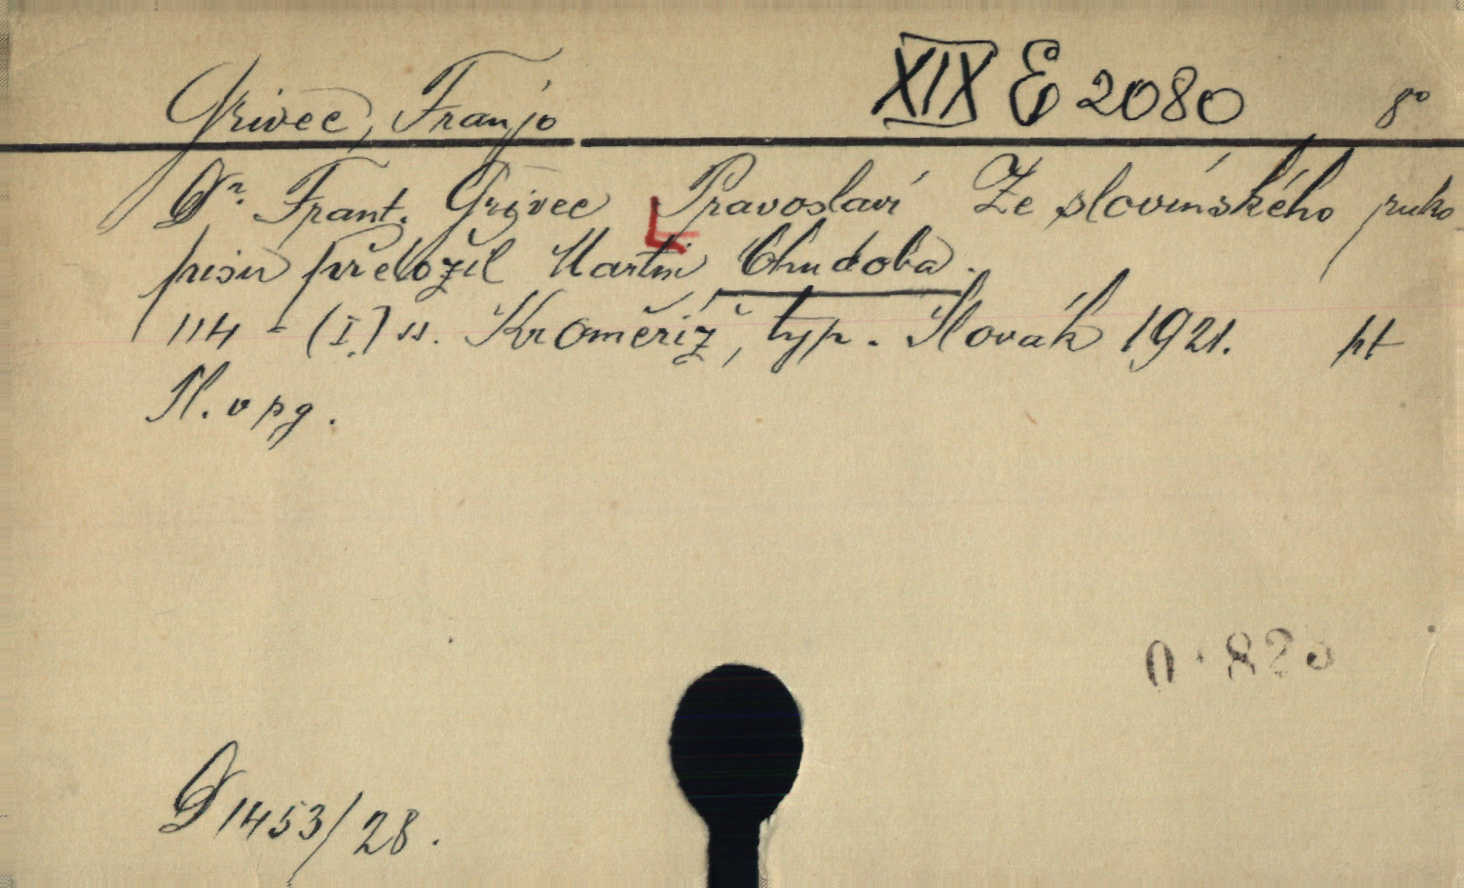 Grivec, Franjo XIX E 2080 8°
Dr. Frant. Grivec Pravoslaví Ze slovinského ruko
pisu přeložil Martin Chudoba.
114 - (I) s. Kroměříž, typ. Slovák 1921. pt
Sl. v pg.
D 1453/28.